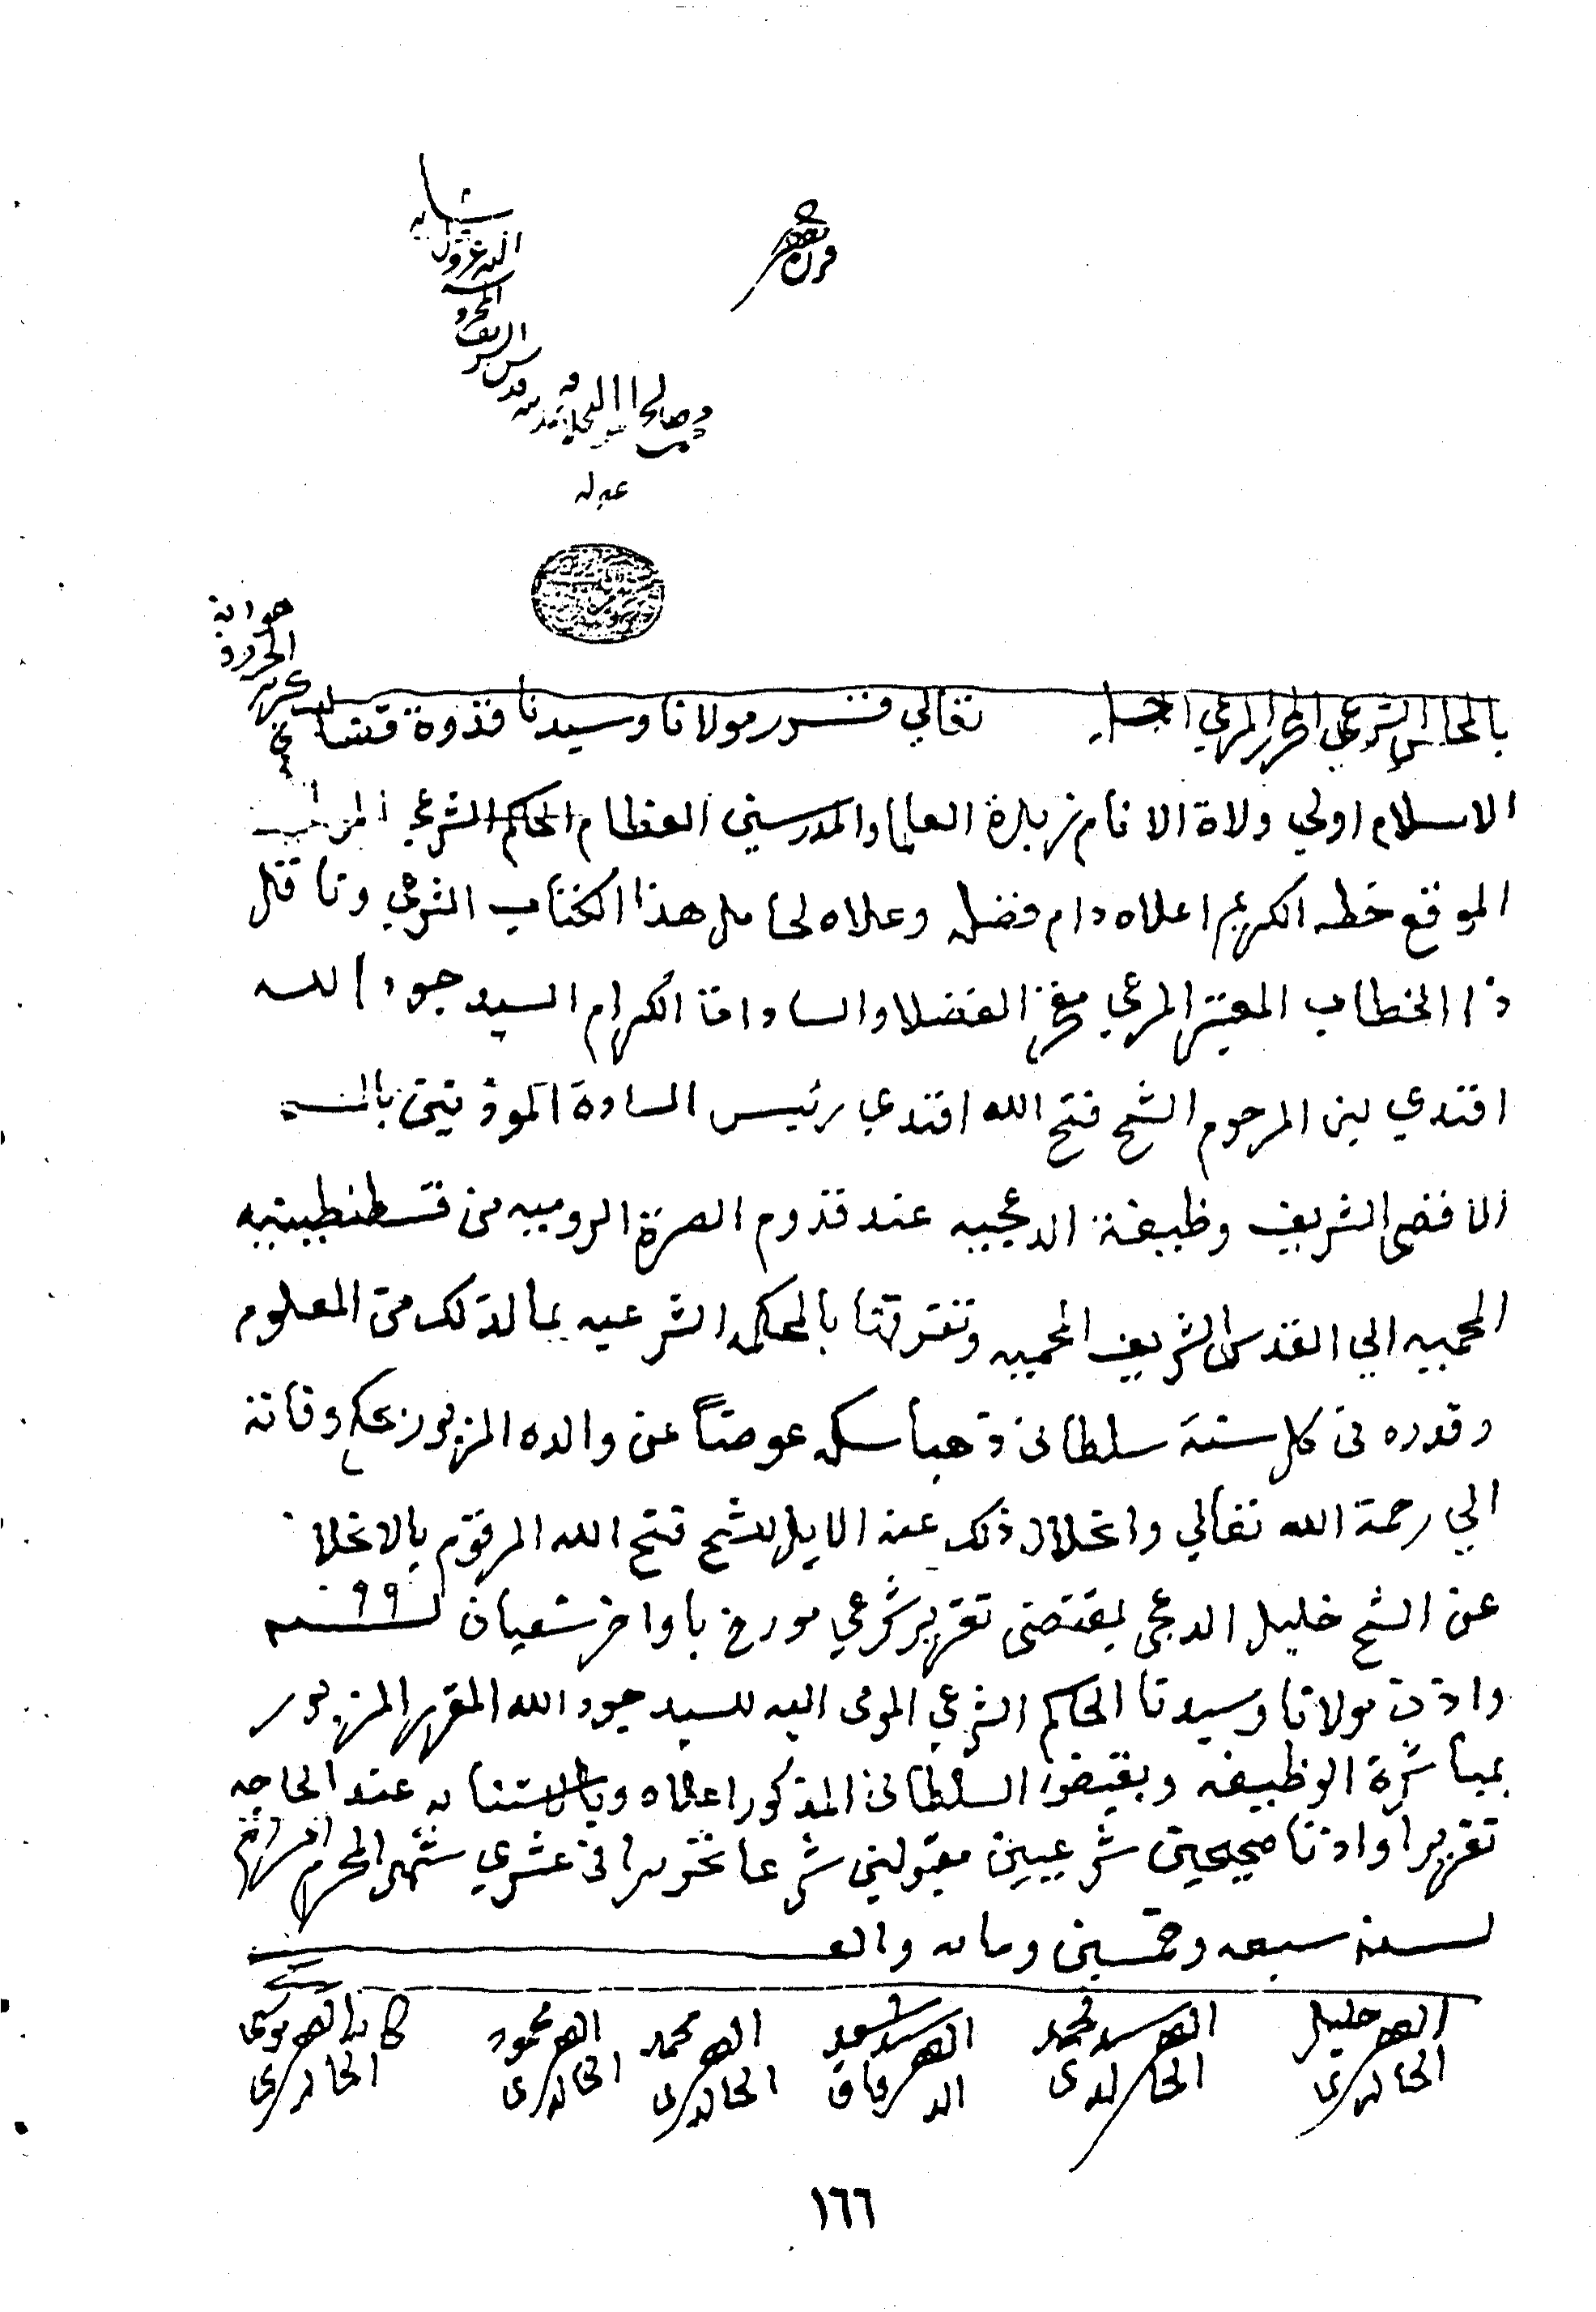 بالمجلس الشرعي المحرر المرعي اجله تعالي قرر مولانا وسيدنا قدوة قضاة
الاسلام اولي ولاة الانام زبدة العلما والمدرسين العظام الحاكم الشرعي
الموقع خطه الكريم اعلاه دام فضله وعلاه لحامل هذا الكتاب الشرعي وناقل
ذا الخطاب المعتبر المرعي فخر الفضلا والسادات الكرام السيد جود الله
افندي بن المرحوم الشيخ فتح الله افندي رئيس السادة الموذنين بالمسجد
الاقصى الشريف وظيفة الدعجيه عند قدوم الصرة الروميه من قسطنطينيه
المحميه الي القدس الشريف المحميه وتفرقتها بالمحكمه الشرعيه بما لذلك من المعلوم
وقدره في كل سنة سلطاني ذهبا سكه عوضاً عن والده المزبور بحكم وفاته
الي رحمة الله تعالي وانحلال ذلك عنه الايل للشيخ فتح الله المرقوم بالانحلال
عن الشيخ خليل الدعجي بمقتضى تقرير شرعي مورخ باواخر شعبان لسنة ٩٩
واذن مولانا وسيدنا الحاكم الشرعي المومى اليه للسيد جود الله المقرر المزبور
بمباشرة الوظيفه وبقبض السلطاني المذكور اعلاه وبالاستنابه عند الحاجه
تقريرا واذنا صحيحين شرعيين مقبولين شرعا تحريرا في عشري شهر المحرم الحرام
لسنة سبعه وخمسين ومايه والف
الفقير خليل الخالدي
الفقير السيد محمد الخالدي
الفقير السيد
الفقير محمد الخالدي
الفقير محمود الخالدي
كاتبه الفقير موسى الخالدي
١٦٦